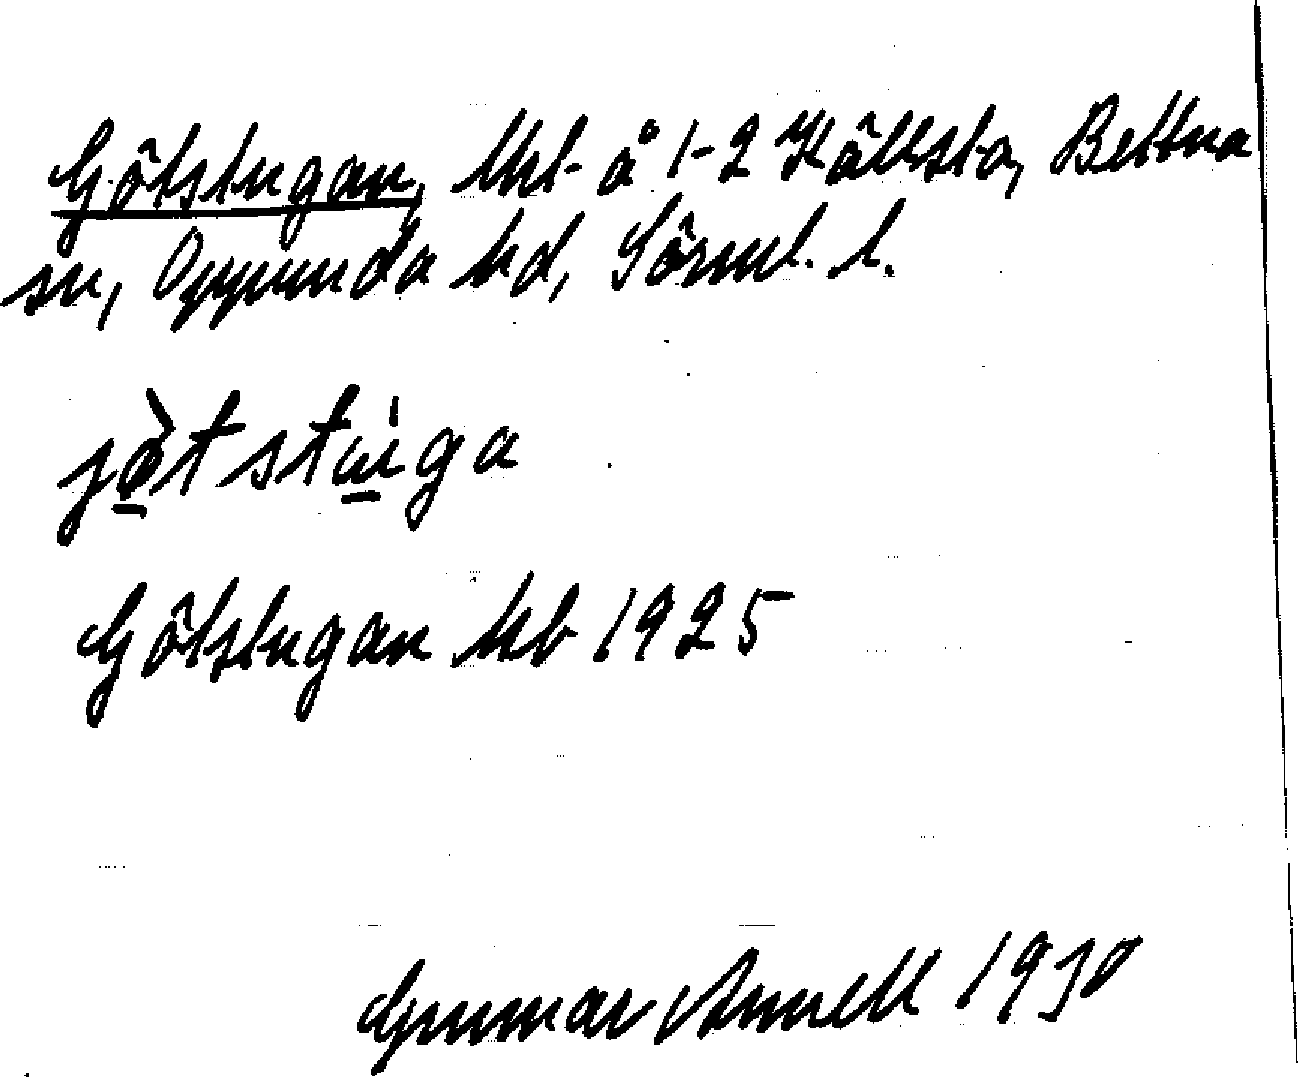 Götstugan, lht å 1-2 Källsta, Bettna
sn, Oppunda hd, Sörml. l.
jòt stùga
Götstugan Mb 1925
Gunnar Annell 1930